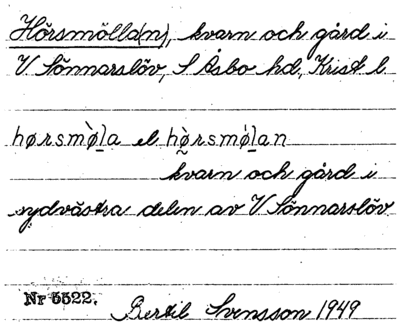 Hörsmölla(n), kvarn och gård i
V Sönnarslöv, S Åsbo hd, Krist l.
hørsmø̀l̲a el hø̀rsmǿl̲an
kvarn och gård i
sydvästra delen av V Sönnarslöv
Nr 5522.
Bertil Svensson 1949